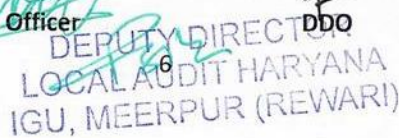 Officer DDO
DEPUTY DIRECTOR
6
LOCAL AUDIT HARYANA
IGU, MEERPUR (REWARI)